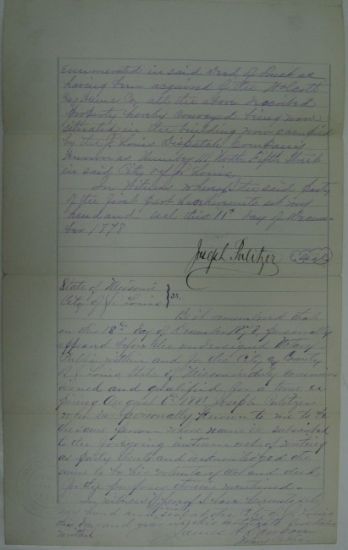 enumerated in said Deed of Trust as
having been acquired of the
all the above described
Property hereby conveyed being now
situated in the building now occupied
by the St Louis Dispatch Company
Known as Number North Fifth Street
in said City of St. Louis.
In Witness whereof the said Party
of the first part has hereunto set my
hand and seal this 18th day of Decem-
ber 1878
Joseph Pulitzer Seal
State of Missouri
City of St. Louis } ss.
Be it remembered that
on the 18th day of December 1878, personally
appeared before the undersigned Notary
Public within and for the City of
St. Louis State of Missouri duly commis-
sioned and qualified, for a term ex-
piring August 1881 Joseph Pulitzer
who is personally known to me to be
the same person whose name is subscribed
to the foregoing instrument of writing
as party thereto and acknowledged the
same to be his voluntary act and deed,
for the purposes therein mentioned.
In witness whereof I have hereunto set
my hand and
James